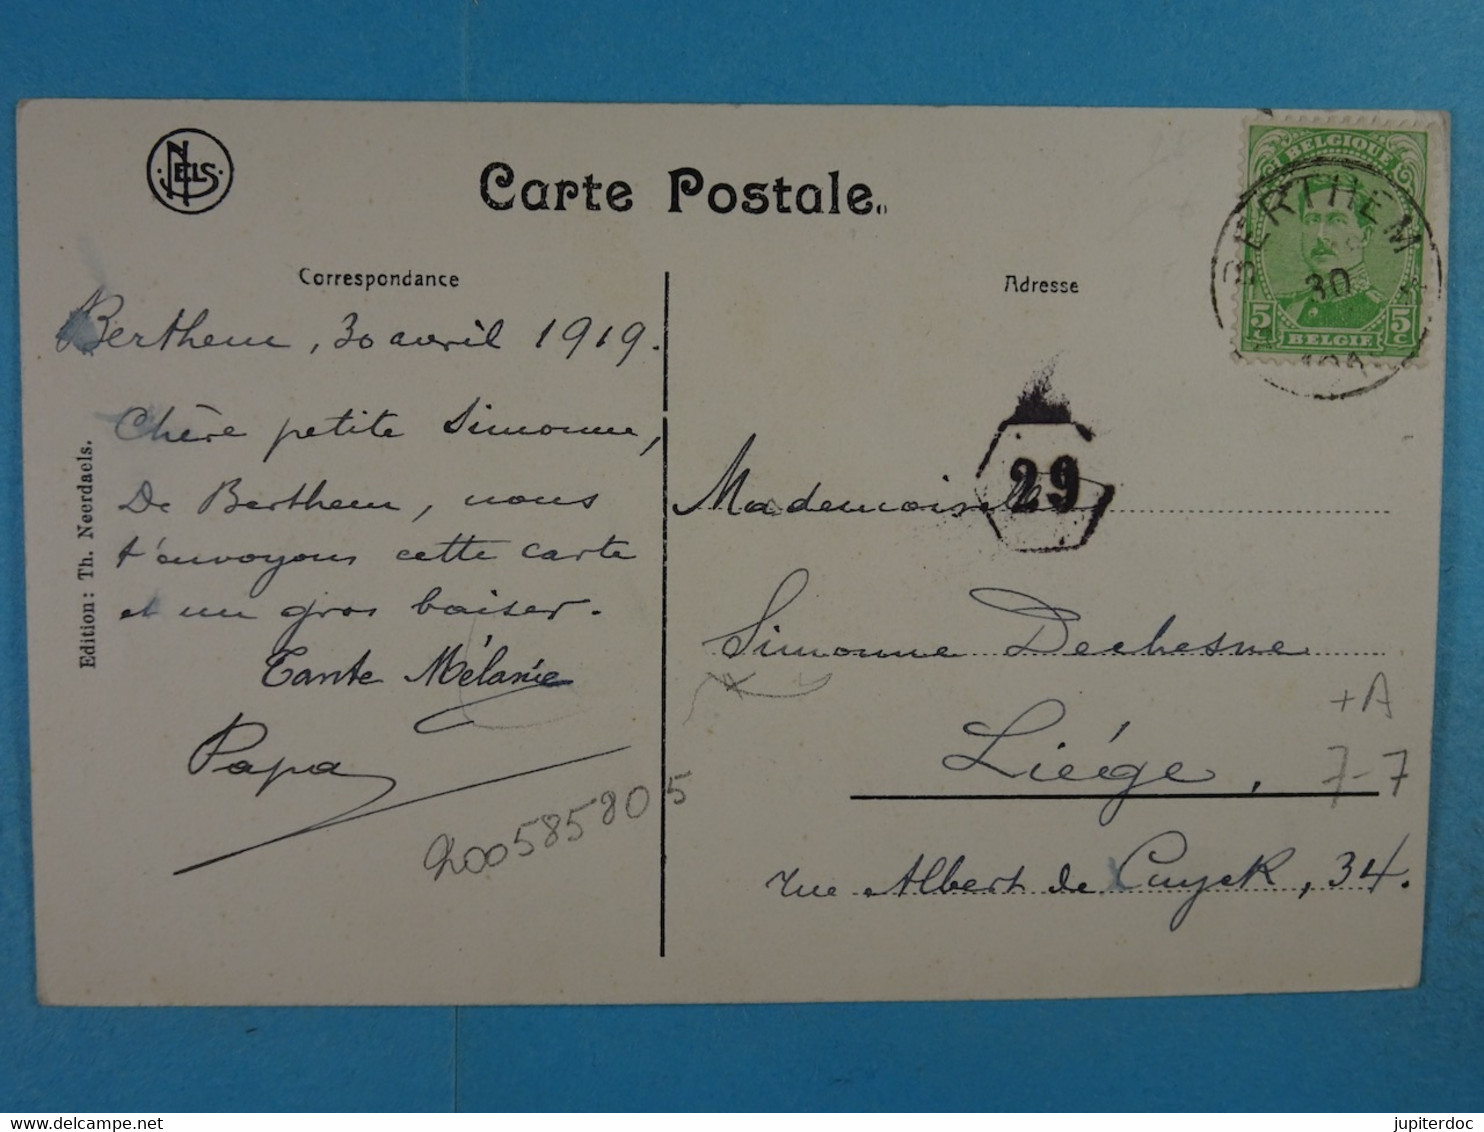 NELS
Carte Postale.
Correspondance
Adresse
BELGIQUE
BERTHEM
30
5 5
C C
BELGIE
Berthem, 30 avril 1919.
Chère petite Simonne,
De Berthem, nous
t'envoyons cette carte
et un gros baiser.
Tante Mélanie
Papa
2005858205
Edition: Th. Neerdaels.
29
Mademoiselle
Simonne Dechesne
Liége,
rue Albert de Cuyck, 34.
+A
7-7
jupiterdoc